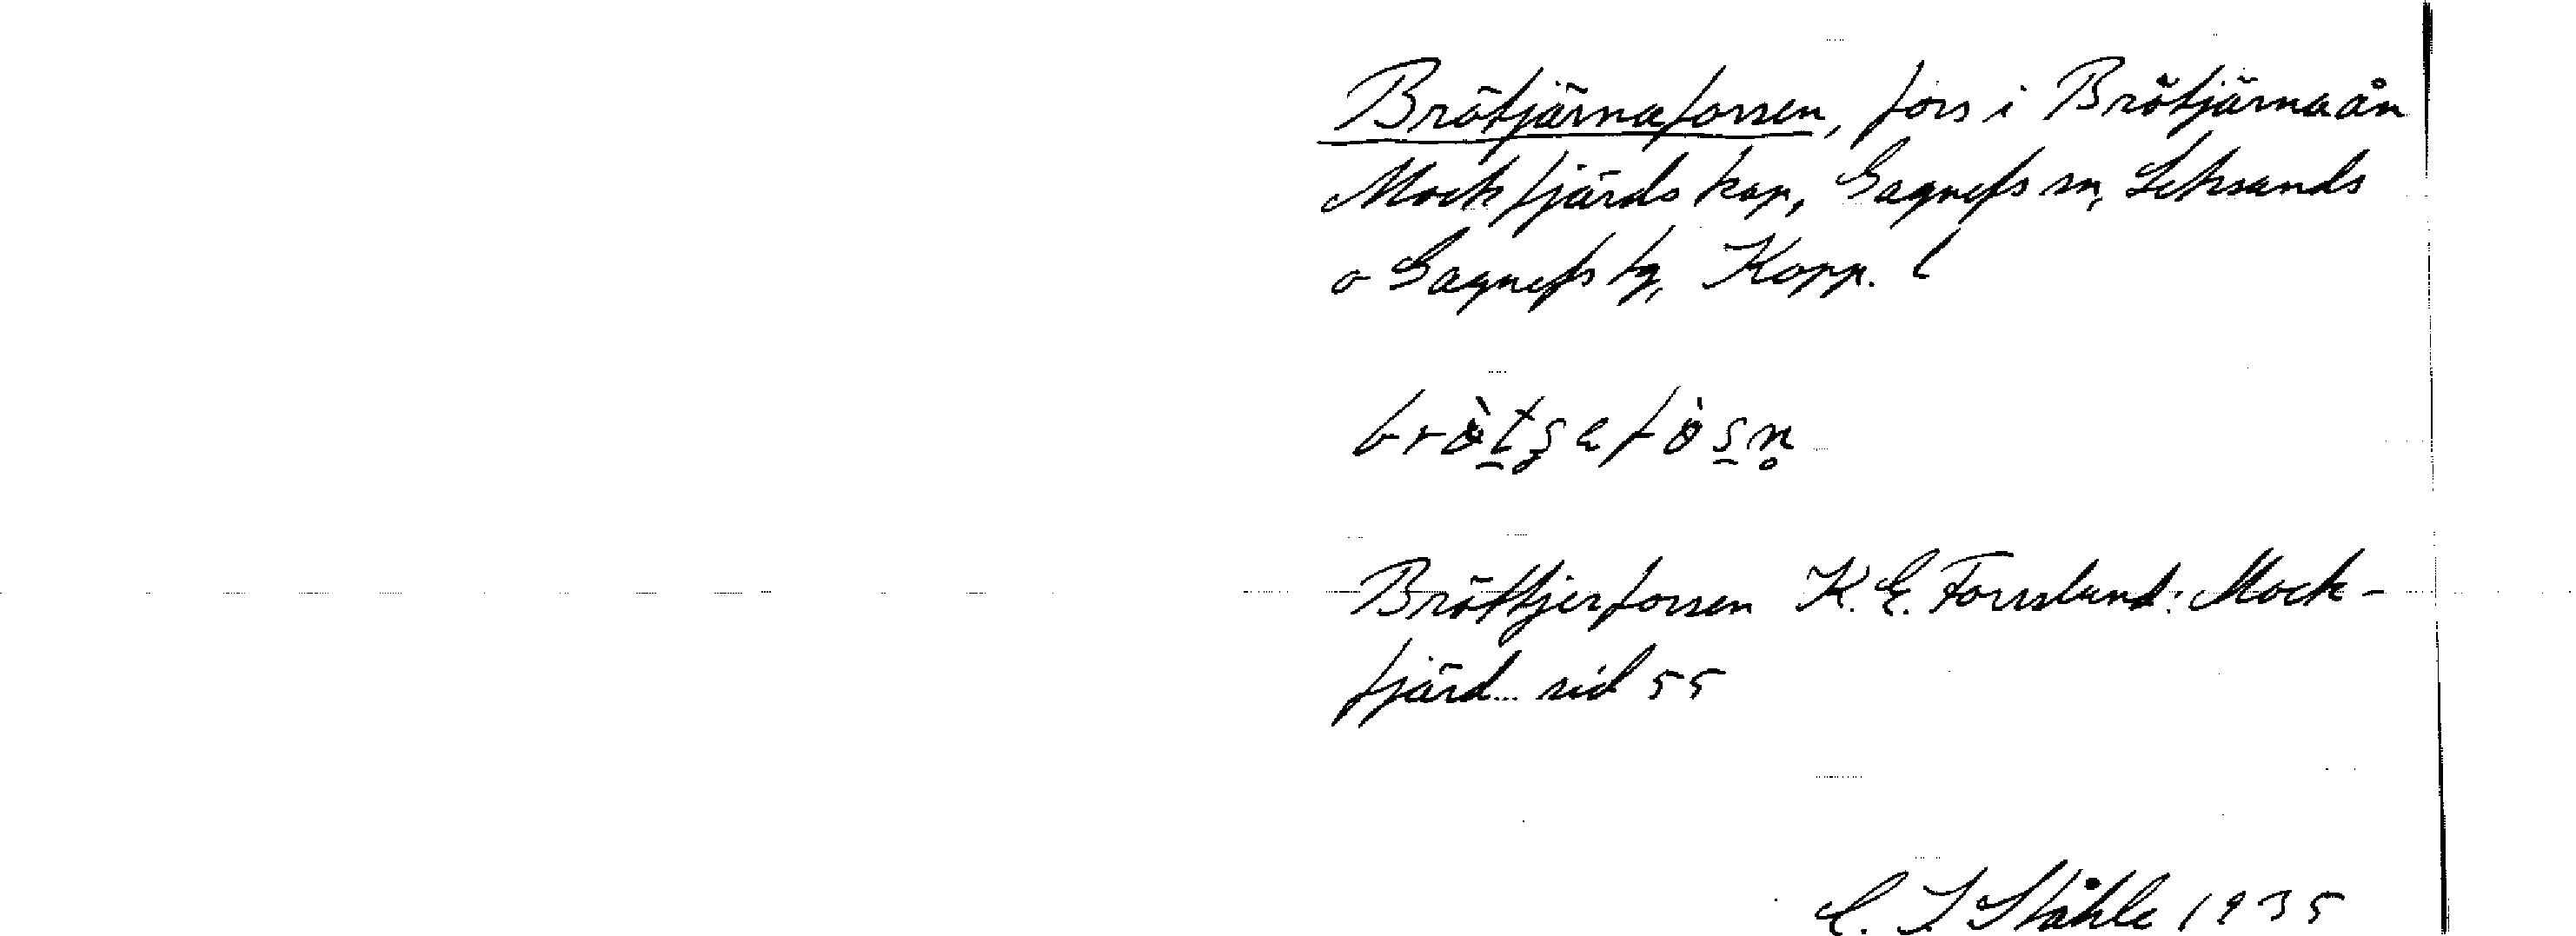 Brötjärnaforsen, fors i Brötjärnaån
Mockfjärds kap, Gagnefs sn, Leksands
o Gagnefs tg, Kopp. l
Bröttjerforsen K. E. Forrslund: Mock-
fjärd... sid 55
C. I Ståhle 1935